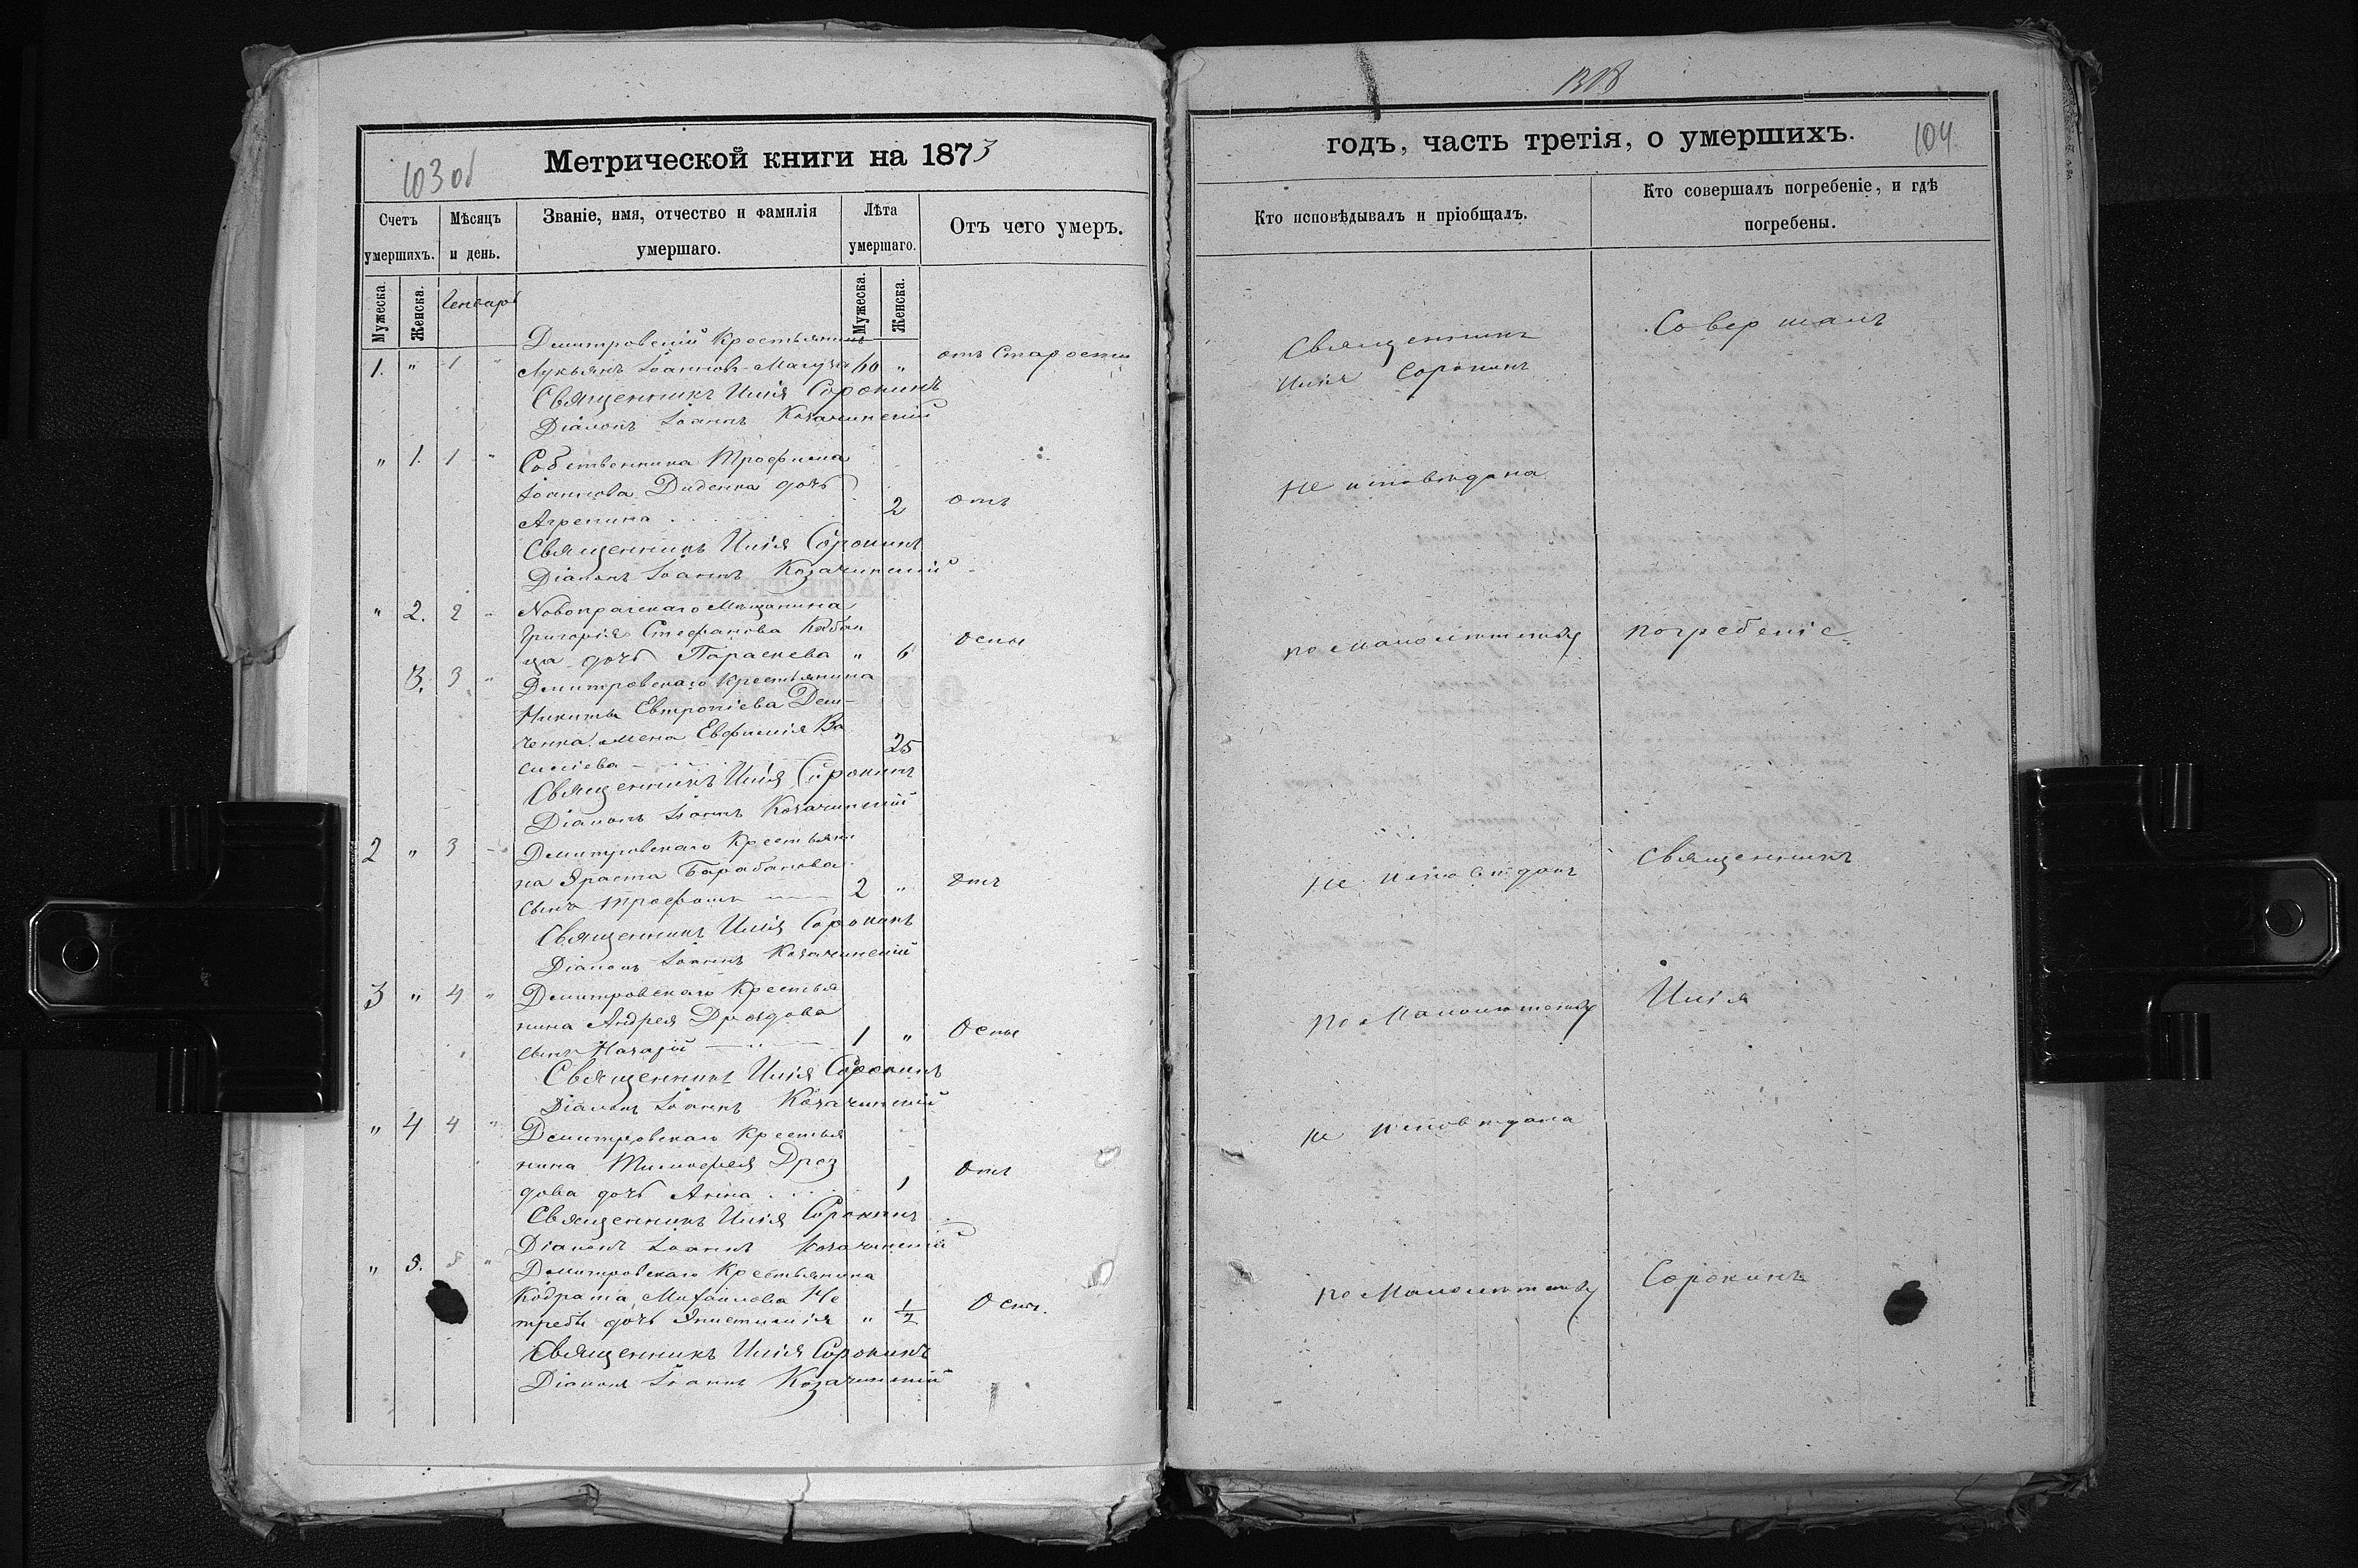 103 об
Метрической книги на 1873
Счетъ умершихъ.
Мѣсяцъ и день.
Званіе, имя, отчество и фамилія умершаго.
Лѣта умершаго.
Отъ чего умеръ.
Мужеска.
Женска.
Генваръ
Мужеска.
Женска.
Дмитровскій Крестьянинъ
1. " 1 " Лукьянъ Іоанновъ 60 " отъ Старости
Священникъ Илія Сорокинъ
Діаконъ Іоаннъ Козачинскій
" 1. 1 " Собственника Трофима
Іоаннова Диденка дочь
Агрепина 2 отъ
Священникъ Илія Сорокинъ
Діаконъ Іоаннъ Козачинскій
" 2. 2 " Новопражскаго Мѣщанина
Григорія Стефанова
дочь Параскева " 6 Оспы
3. 3 " Дмитровскаго Крестьянина
Никиты Евтропіева Дем-
ченка жена Евфимія Ва
силіева 25
Священникъ Илія Сорокинъ
Діаконъ Іоаннъ Козачинскій
2 " 3 - Дмитровскаго Крестьяни
на Ераста Барабанова
сынъ Трофимъ 2 " Отъ
Священникъ Илія Сорокинъ
Діаконъ Іоаннъ Козачинскій
3 " 4 " Дмитровскаго Крестья
нина Андрея Дроздова
сынъ Назарій 1 " Оспы
Священникъ Илія Сорокинъ
Діаконъ Іоаннъ Козачинскій
" 4 4 " Дмитровскаго Крестья
нина Тимофея Дроз
дова дочь Анна 1 Отъ
Священникъ Илія Сорокинъ
Діаконъ Іоаннъ Козачинскій
" 5. 5 " Дмитровскаго Крестьянина
Кодрата Михаилова Не
требы дочь " 1/2 Оспы.
Священникъ Илія Сорокинъ
Діаконъ Іоаннъ Козачинскій
годъ, часть третія, о умершихъ.
104
Кто исповѣдывалъ и пріобщалъ.
Кто совершалъ погребеніе, и гдѣ погребены.
Священникъ Совершалъ
Илія Сорокинъ
Не исповѣдана
по малолѣтству погребеніе
Не исповѣданъ Священникъ
по Малолѣтству Илія
не исповѣдана
по Малолѣтству Сорокинъ